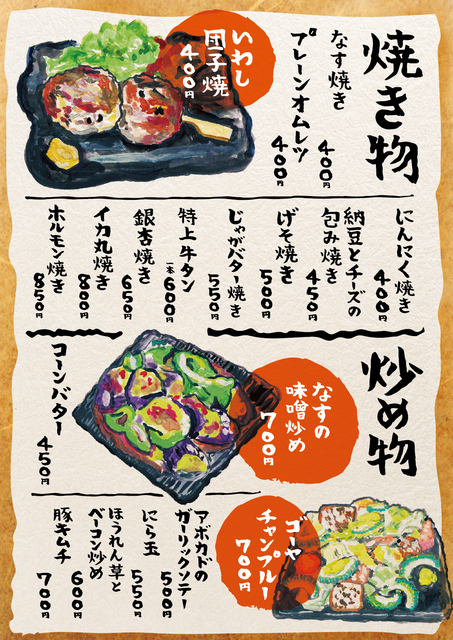 焼き物
なす焼き
400円
プレーンオムレツ
400円
いわし
団子焼
400円
にんにく焼き
400円
納豆とチーズの
包み焼き
450円
げそ焼き
500円
じゃがバター焼き
550円
特上牛タン
一本600円
銀杏焼き
650円
イカ丸焼き
800円
ホルモン焼き
850円
炒め物
なすの
味噌炒め
700円
コーンバター
450円
ゴーヤ
チャンプルー
700円
アボカドの
ガーリックソテー
500円
にら玉
550円
ほうれん草と
ベーコン炒め
600円
豚キムチ
700円